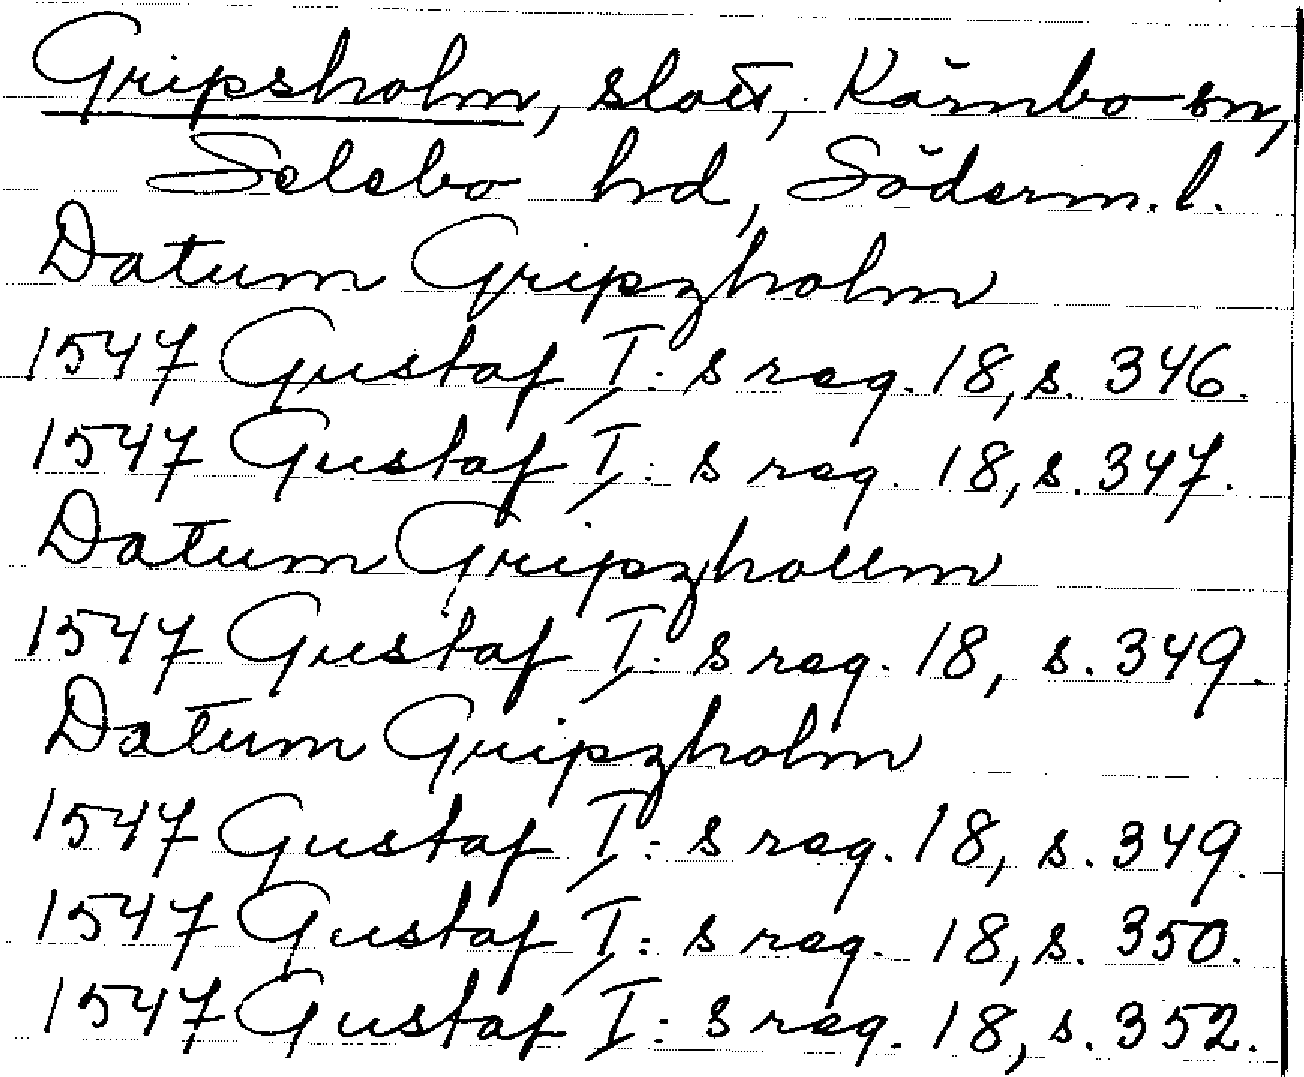 Gripsholm, slott, Kärnbo sn,
Selebo hd, Söderm. l.
Datum Gripzholm
1547 Gustaf I:s reg. 18, s. 346.
1547 Gustaf I:s reg. 18, s. 347.
Datum Gripzhollm
1547 Gustaf I:s reg. 18, s. 349.
Datum Gripzholm
1547 Gustaf I:s reg. 18, s. 349.
1547 Gustaf I:s reg. 18, s. 350.
1547 Gustaf I:s reg. 18, s. 352.